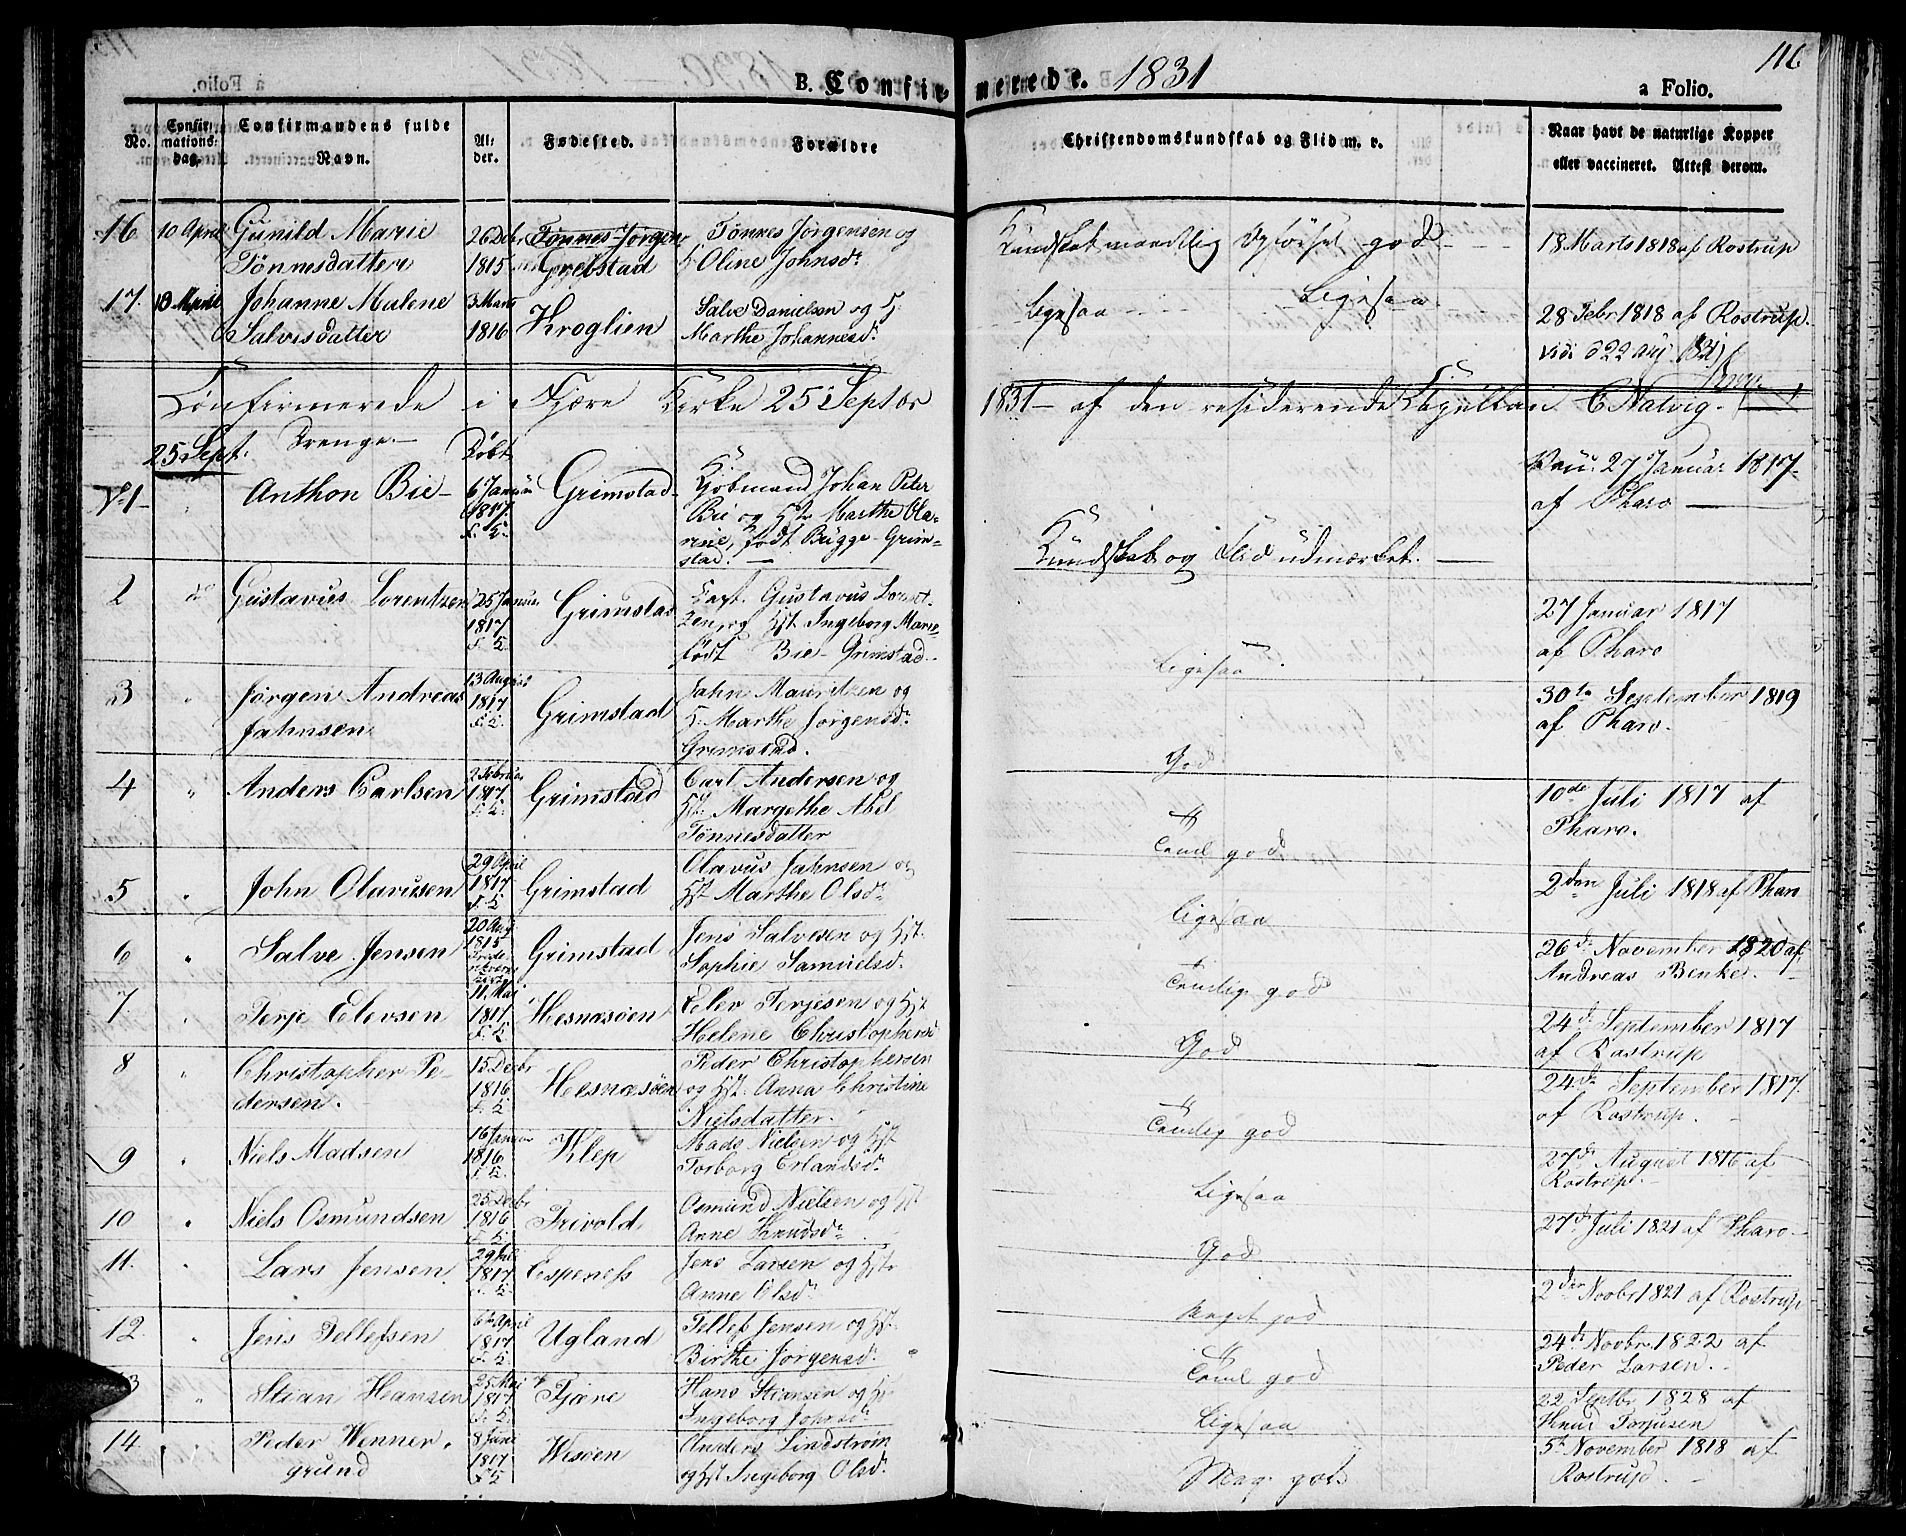 116
B. Confirmerede. 1831
a Folio.
No.
Confirmations-dag.
Confirmandens fulde Navn.
Alder.
Fødested.
Forældre
Christendomskundskab og Flid m. v.
Naar havt de naturlige Kopper eller vaccineret. Attest derom.
16 10 April Gunild Marie 26 Debr Tønnes Jørgen Tønnes Jørgensen og Kundskab maadelig Opførsel god 18 Marts 1818 af Rostrup
Tønnesdatter 1815 Grefstad H. Oline Johnsdr
17. 10 April Johanne Malene 3 Marts Kroglien Salve Danielsen og H. Ligesaa Ligesaa 28 Febr 1818 af Rostrup.
Salvesdatter 1816 Marthe Johannesd.
Confirmerede i Fjære Kirke 25 Septbr 1831 - af den residerende Kapellan C Natvig.
25 Sept. Drenge Døbt
No 1 Anthon Bie 6 Januar Grimstad Kjøbmand Johan Peter Vac. 27 Januar 1817
1817 Bie og Hst. Marthe Ola- af Pharo
rine, født Bügge Grim-
stad. Kundskab og Flid udmærket.
2 do Gustavus Lorentzen 25 Januar Grimstad Capt. Gustavus Lorent- 27 Januar 1817
1817 zen og Hst Ingeborg Marie af Pharo
født Bie Grimstad Ligesaa
3 " Jørgen Andreas 13 August Grimstad Jahn Mauritzen og 30te September 1819
Jahnsen 1817 H. Marthe Jørgensd. af Pharo.
Grimstad. God
4 " Anders Carlsen 2 Februar Grimstad Carl Andersen og 10de Juli 1817 af
1817 Hst. Margethe Abel Pharo.
Tønnesdatter Teml god
5 " John Olavusen 29 April Grimstad Olavus Jahnsen og 2den Juli 1818 af Pharo
1817 Hst Marthe Olsdr Ligesaa
6 " Salve Jensen 20 Aug Grimstad Jens Salvesen og Hst. 26de November 1820 af
1815 Sophie Samuelsd. Temlig god Andreas Benker.
7 " Terje Elevsen 11. Mai Hesnæsøen Elev Terjesen og Hst 24de September 1817
1817 Helene Christophersd God af Rostrup
8 " Christopher Pe- 15 Decbr Hesnæsøen Peder Christophersen 24de September 1817.
dersen. 1816 og Hst. Anna Christine af Rostrup.
Nielsdatter. Temlig god
9 " Niels Madsen 16 Januar Klep Mads Nielsen og Hst 27de August 1816 af
1816 Torborg Erlandsdr Ligesaa Rostrup.
10 " Niels Osmundsen 25 Decbr Trivold Osmund Nielsen og Hst 27de Juli 1821 af Pharo
1816 Anne Knudsdr God
11. " Lars Jensen 29 Juli Espeness Jens Larsen og Hst. 2den Novbr 1821 af Rostrup
1817 Anne Olsdr Meget god
12. " Jens Tellefsen 6te April Ugland Tellef Jensen og Hst. 24de Novbr. 1822 af
1817 Birthe Jørgensd. Teml god Peder Larsen.
13 " Stian Hansen 25 Mai Fjære Hans Stiansen og H. 22 Septbr 1828 af
1817 Ingeborg Johnsdr Ligesaa Knud Torjusen
14. " Peder Wenner- 8 Juni Wesøen Anders Lindstrøm 5te November 1818 af
grund 1817 og Hst Ingeborg Olsd. Meg. god. Rostrup